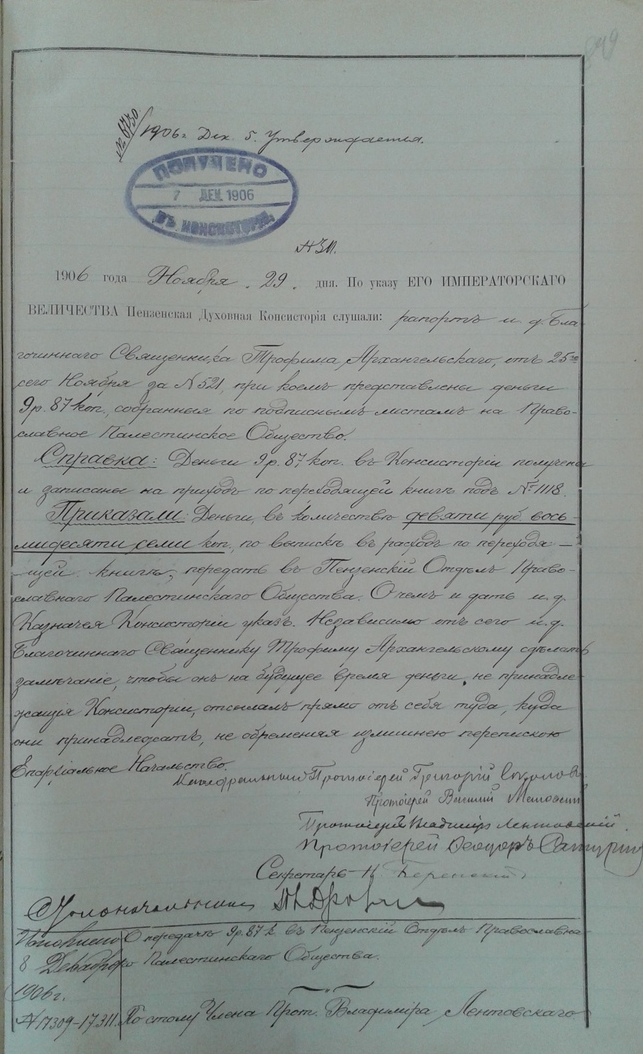 849
1906 г. Дек. 5. Утверждается.
ПОЛУЧЕНО
7 ДЕК 1906
ВЪ КОНСИСТОРІИ
№ 311.
1906 года Ноября 29 дня. По указу ЕГО ИМПЕРАТОРСКАГО
ВЕЛИЧЕСТВА Пензенская Духовная Консисторія слушали: рапортъ и. д. Бла-
гочиннаго Священника Трофима Архангельскаго, отъ 25го
сего Ноября за № 521, при коемъ представлены деньги
9 р. 87 коп., собранныя по подписнымъ листамъ на Право-
славное Палестинское Общество.
Справка: Деньги 9 р. 87 коп. въ Консисторіи получены
и записаны на приходъ по переходящей книгѣ подъ № 1118.
Приказали: Деньги, въ количествѣ девяти руб. вось-
мидесяти семи коп., по выпискѣ въ расходъ по переходя-
щей книгѣ, передать въ Пензенскій Отдѣлъ Право-
славнаго Палестинскаго Общества. О чемъ и дать и. д.
Казначея Консисторіи указъ. Независимо отъ сего и. д.
Благочиннаго Священнику Трофиму Архангельскому сдѣлать
замѣчаніе, чтобы онъ на будущее время деньги, не принадле-
жащія Консисторіи, отсылалъ прямо отъ себя туда, куда
они принадлежатъ, не обременяя излишнею перепискою
Епархіальное Начальство.
Каѳедральный Протоіерей Григорій Соколовъ
Протоіерей
Протоіерей Владиміръ Лентовскій
Протоіерей Ѳеодоръ
Секретарь Н.
Столоначальникъ
Исполнено О передачѣ 9 р. 87 к. въ Пензенскій Отдѣлъ Православна-
8 Декабря го Палестинскаго Общества.
1906 г.
№ 17309-17311 По столу Члена Прот. Владиміра Лентовскаго